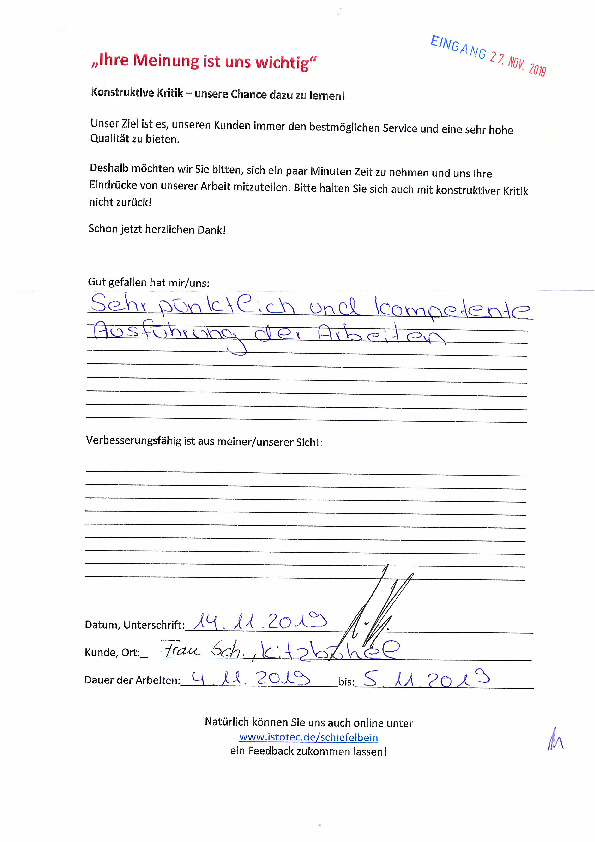 EINGANG 27. NOV. 2019
„Ihre Meinung ist uns wichtig“
Konstruktive Kritik – unsere Chance dazu zu lernen!
Unser Ziel ist es, unseren Kunden immer den bestmöglichen Service und eine sehr hohe
Qualität zu bieten.
Deshalb möchten wir Sie bitten, sich ein paar Minuten Zeit zu nehmen und uns Ihre
Eindrücke von unserer Arbeit mitzuteilen. Bitte halten Sie sich auch mit konstruktiver Kritik
nicht zurück!
Schon jetzt herzlichen Dank!
Gut gefallen hat mir/uns:
Sehr pünktlich und kompetente
Ausführung der Arbeiten
Verbesserungsfähig ist aus meiner/unserer Sicht:
Datum, Unterschrift: 14.11.2019
Kunde, Ort: Frau Sch., Kitzbühel
Dauer der Arbeiten: 4 11. 2019 bis: 5 11 2019
Natürlich können Sie uns auch online unter
www.istotec.de/schiefelbein
ein Feedback zukommen lassen!